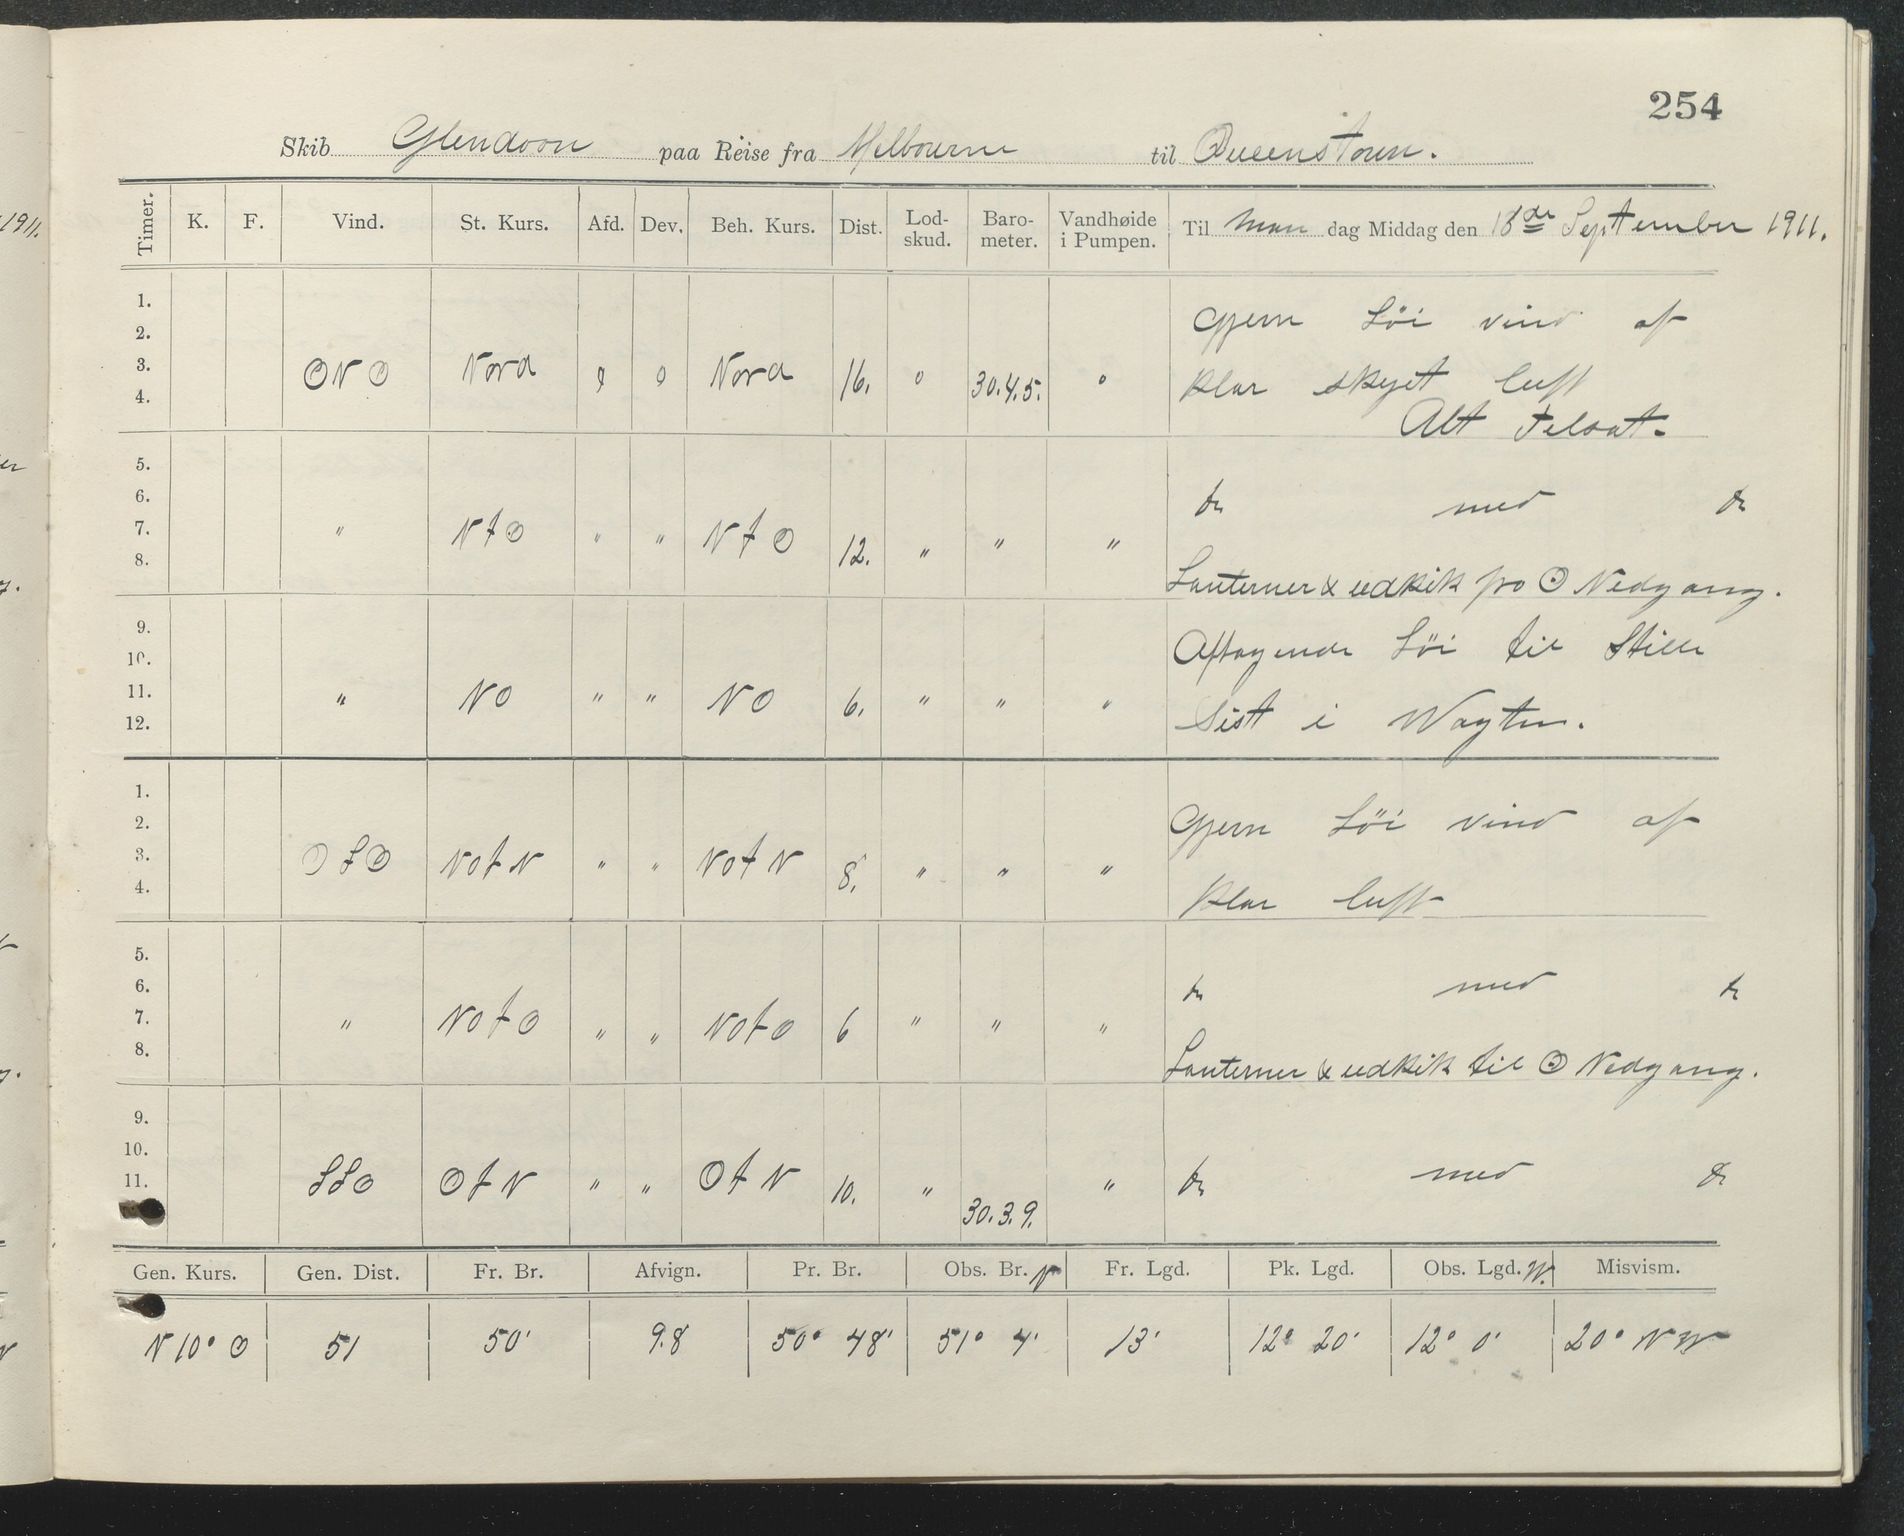 254
Skib Glendoon paa Reise fra Melbourne til Queenstown.
Timer. K. F. Vind. St. Kurs. Afd. Dev. Beh. Kurs. Dist. Lod-skud. Baro-meter. Vandhøide i Pumpen. Til Man dag Middag den 18de September 1911.
1. Gjem löi vind af
2.
3. ONO Nord 0 0 Nord 16. 0 30.4.5. 0 klar skyet luft
4. Alt Velsat.
5.
6. do med do
7. " N t O " " N t O 12. " " "
8. Lanterner & udkik fra ⊙ Nedgang.
9. Aftagende löi til Stille
10.
11. " NO " " NO 6. " " " Sist i Wagten.
12.
1. Gjem löi vind af
2.
3. O S O NO t N " " NO t N 8. " " "
4. klar luft
5.
6. do med do
7. " NO t O " " NO t O 6 " " "
8. Lanterner & udkik til ⊙ Nedgang.
9.
10.
11. SSO O t N " " O t N 10. " 30.3.9. " do med do
Gen. Kurs. Gen. Dist. Fr. Br. Afvign. Pr. Br. Obs. Br. N Fr. Lgd. Pk. Lgd. Obs. Lgd. W. Misvism.
N 10° O 51 50' 9.8 50° 48' 51° 4' 13' 12° 20' 12° 0' 20° N W